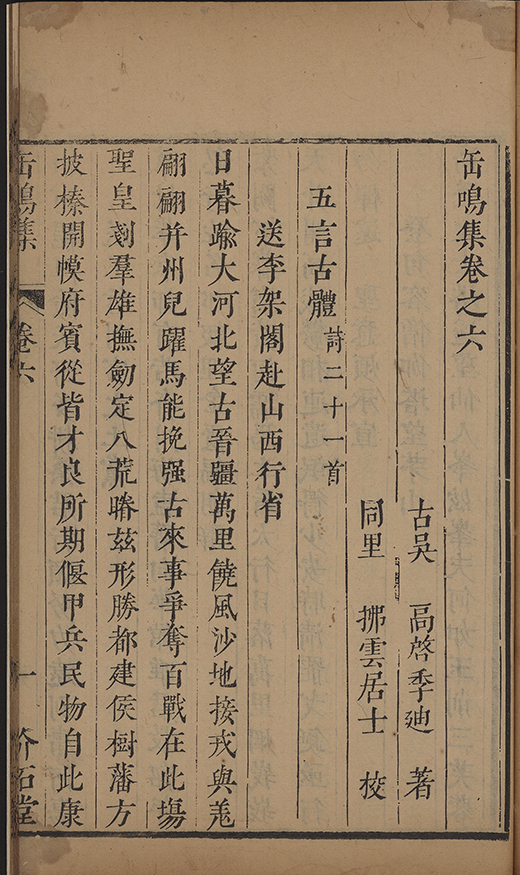 缶鳴集卷之六
古吳 高啓季廸 著
同里 拂雲居士 校
五言古體 詩二十一首
送李架閣赴山西行省
日暮踰大河北望古晉疆萬里饒風沙地接戎與羗
翩翩并州兒躍馬能挽强古來事爭奪百戰在此塲
聖皇剗羣雄撫劒定八荒睠兹形勝都建侯樹藩方
披榛開幙府賓從皆才良所期偃甲兵民物自此康
缶鳴集 卷六 一